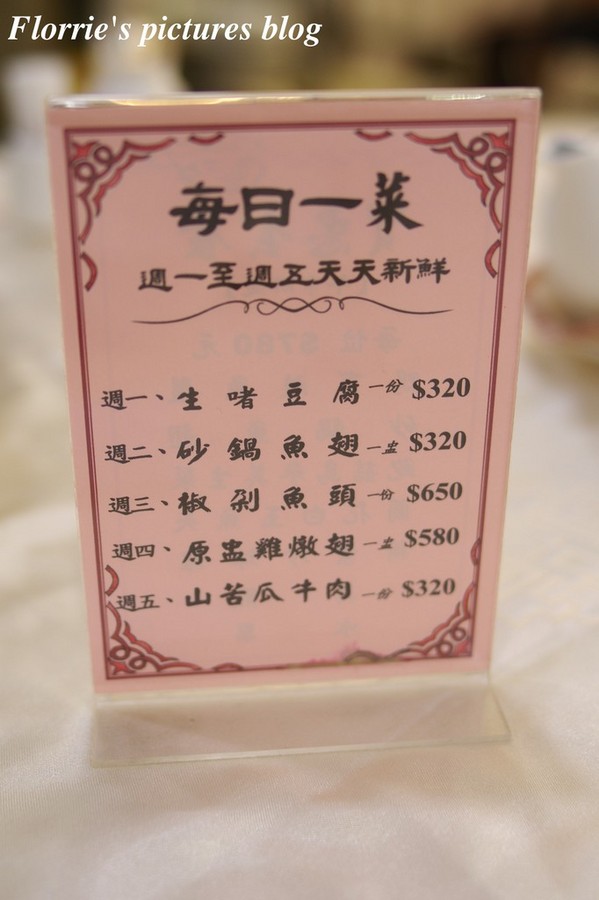 Florrie's pictures blog
每日一菜
週一至週五天天新鮮
週一、生啫豆腐 一份 $320
週二、砂鍋魚翅 一盅 $320
週三、椒剁魚頭 一份 $650
週四、原盅雞燉翅 一盅 $580
週五、山苦瓜牛肉 一份 $320